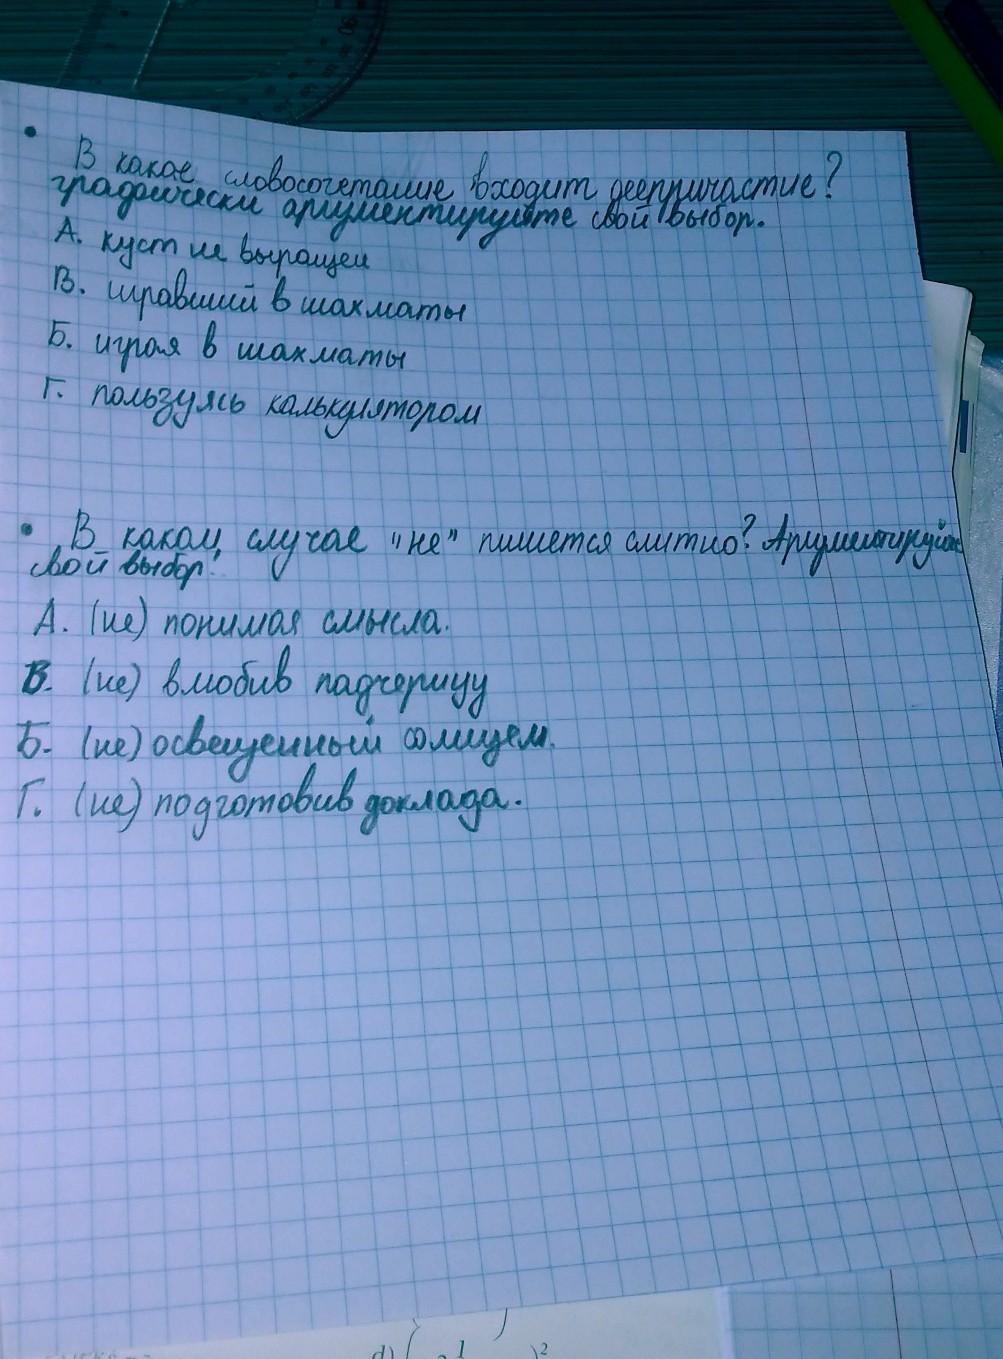 • В какое словосочетание входит деепричастие?
графически аргументируйте свой выбор.
А. куст не выращен
В. игравший в шахматы
Б. играя в шахматы
Г. пользуясь калькулятором
• В каком случае "не" пишется слитно? Аргументируйте
свой выбор!
А. (не) понимая смысла.
В. (не) влюбив падчерицу
Б. (не) освещенный солнцем.
Г. (не) подготовив доклада.
d)
)²